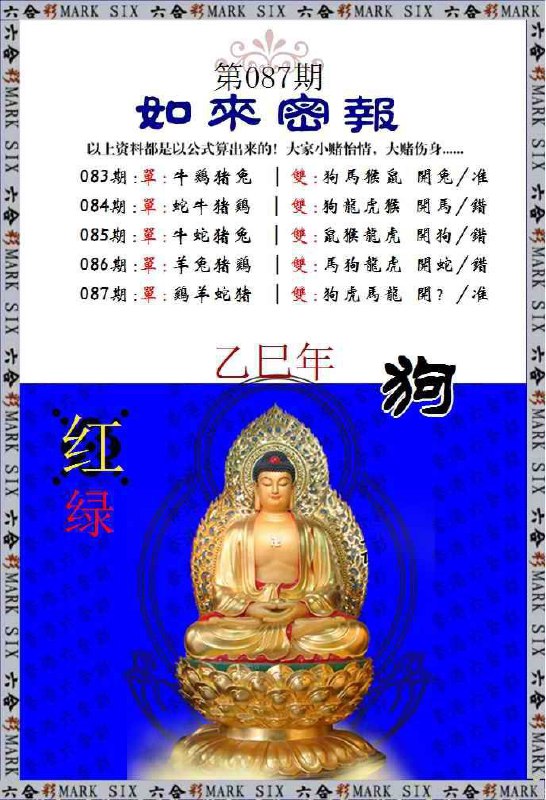 六合彩MARK SIX 六合彩MARK SIX 六合彩MARK SIX 六合彩MARK SIX
第087期
如來密報
以上资料都是以公式算出来的！大家小赌怡情，大赌伤身......
083期:單:牛鷄猪兔 | 雙:狗馬猴鼠 開兔/准
084期:單:蛇牛猪鷄 | 雙:狗龍虎猴 開馬/錯
085期:單:牛蛇猪兔 | 雙:鼠猴龍虎 開狗/錯
086期:單:羊兔猪鷄 | 雙:馬狗龍虎 開蛇/錯
087期:單:鷄羊蛇猪 | 雙:狗虎馬龍 開？/准
乙巳年
狗
红
绿
卍
六合彩MARK SIX 六合彩MARK SIX 六合彩MARK SIX 六合彩MARK SIX